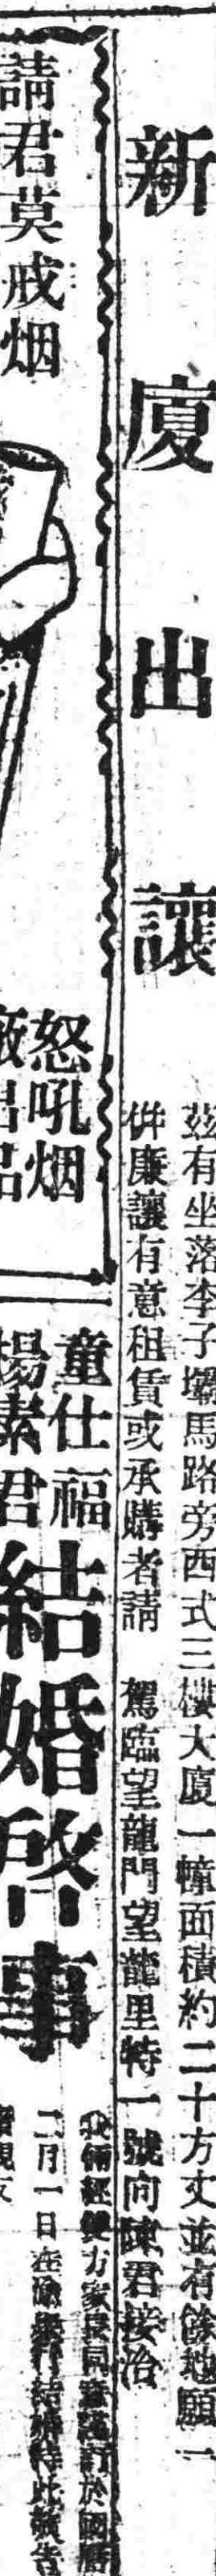 新廈出讓
茲有坐落李子壩馬路旁西式三樓大廈一幢面積約二十方丈並有餘地願一
併廉讓有意租賃或承購者請 駕臨望龍門望龍里特一號向陳君接洽
請君莫戒烟
怒吼烟
廠出品
童仕福
楊素君
結婚啓事
我倆經雙方家長同意謹訂於國曆
二月一日在渝舉行結婚特此敬告
諸親友